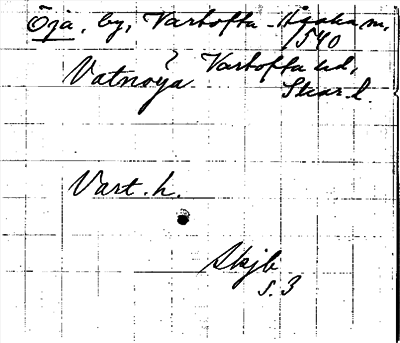 Öja, by, Vartofta-Åsaka sn,
1540
Vatnöya Vartofta hd,
Skar. l.
Vart. h.
Skjb
s. 3